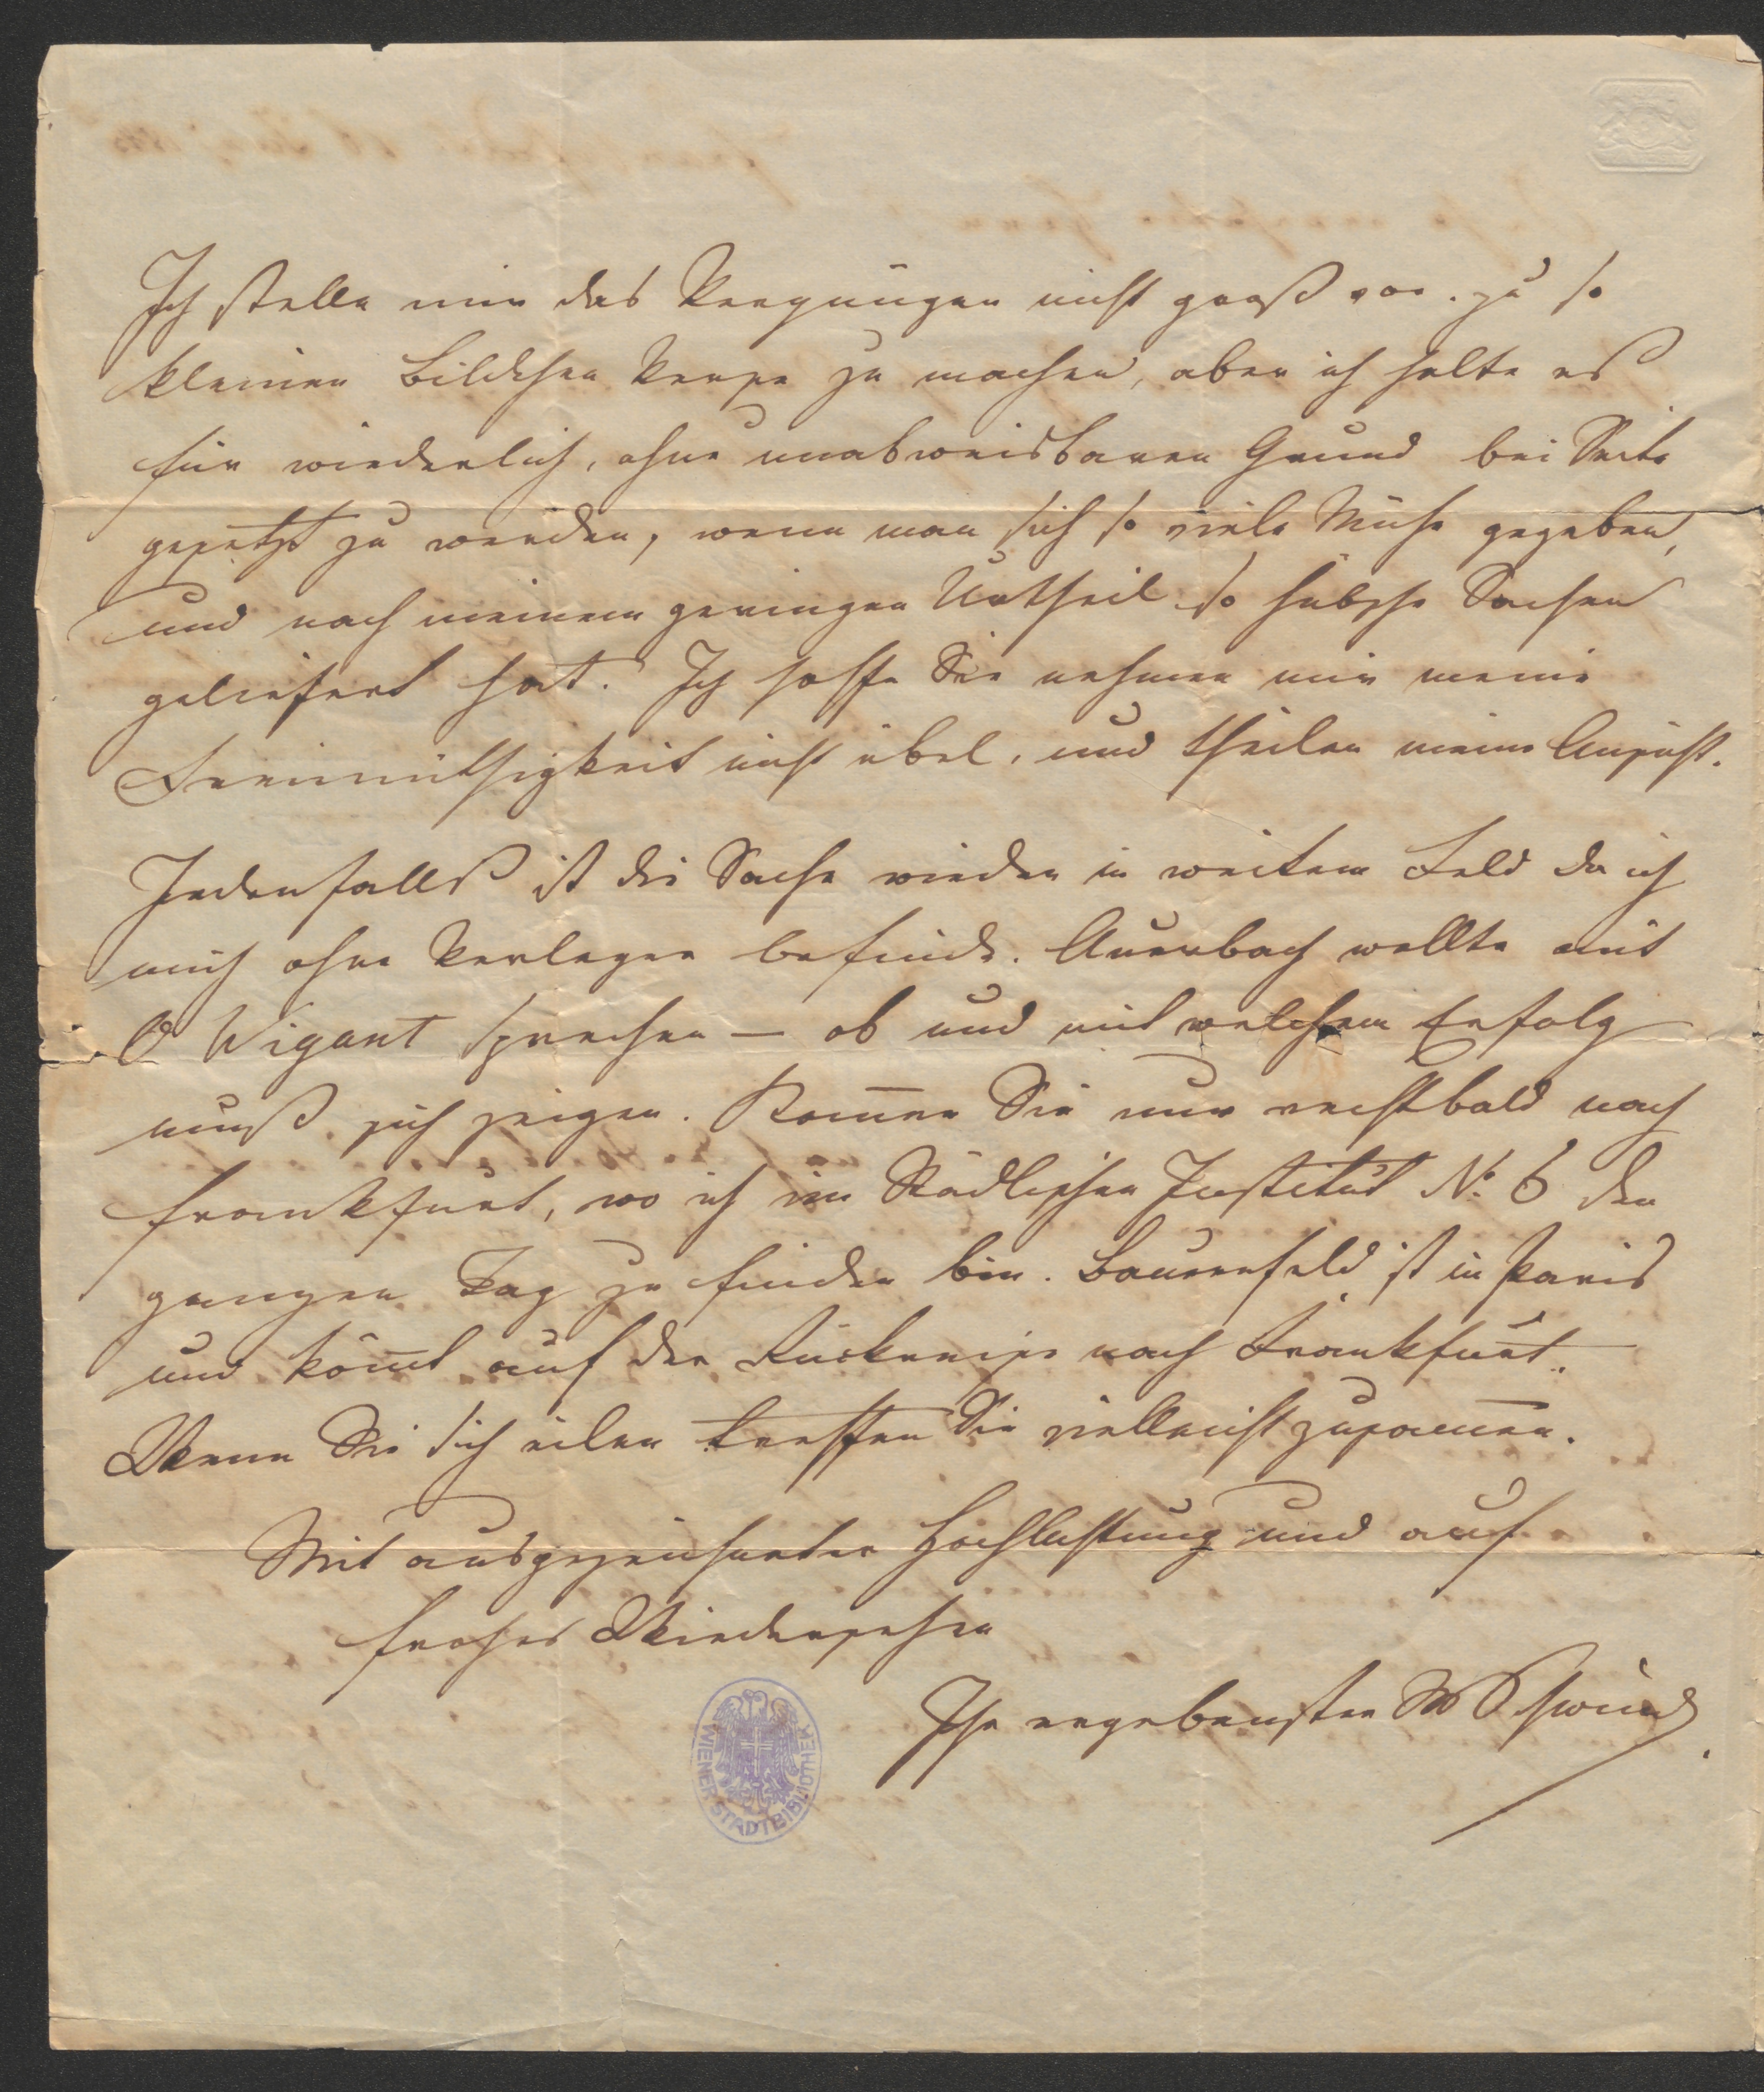 Ich stelle mir das Vergnügen nicht groß vor. zu so
kleinen Bildchen Verse zu machen, aber ich halte es
für wiederlich, ohne unabweisbaren Grund bei Seite
gesetzt zu werden, wenn man sich so viele Mühe gegeben,
und nach meinem geringen Urtheil so hübsche Sachen
geliefert hat. Ich hoffe Sie nehmen mir meine
Freimüthigkeit nicht übel, und theilen meine Ansicht.
Jedenfalls ist die Sache wieder in weitem Feld da ich
mich ohne Verleger befinde. Auerbach wollte mit
O Wigant sprechen — ob und mit welchem Erfolg
muß sich zeigen. Kom̄en Sie nur recht bald nach
Frankfurt, wo ich im Städlischen Institut No. 6 den
ganzen Tag zu finden bin. Bauernfeld ist in Paris
und köm̄t auf der Rückreise nach Frankfurt.
Wenn Sie sich eilen treffen Sie vielleicht zusam̄en.
Mit ausgezeichneter Hochachtung und auf
frohes Wiedersehen
Ihr ergebenster MSchwind
WIENER STADTBIBLIOTHEK